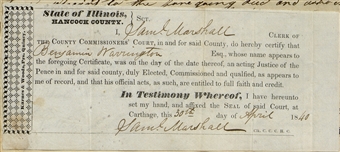 State of Illinois, } Sct.
HANCOCK COUNTY.
I, Saml. Marshall CLERK OF
THE COUNTY COMMISSIONERS' COURT, in and for said County, do hereby certify that
Benjamin Warrington Esq. whose name appears to
the foregoing Certificate, was on the day of the date thereof, an acting Justice of the
Peace in and for said county, duly Elected, Commissioned and qualified, as appears to
me of record, and that his official acts, as such, are entitled to full faith and credit.
In Testimony Whereof, I have hereunto
set my hand, and affixed the SEAL of said Court, at
Carthage, this 30th day of April 1840
Saml. Marshall C. C. C. H. C.